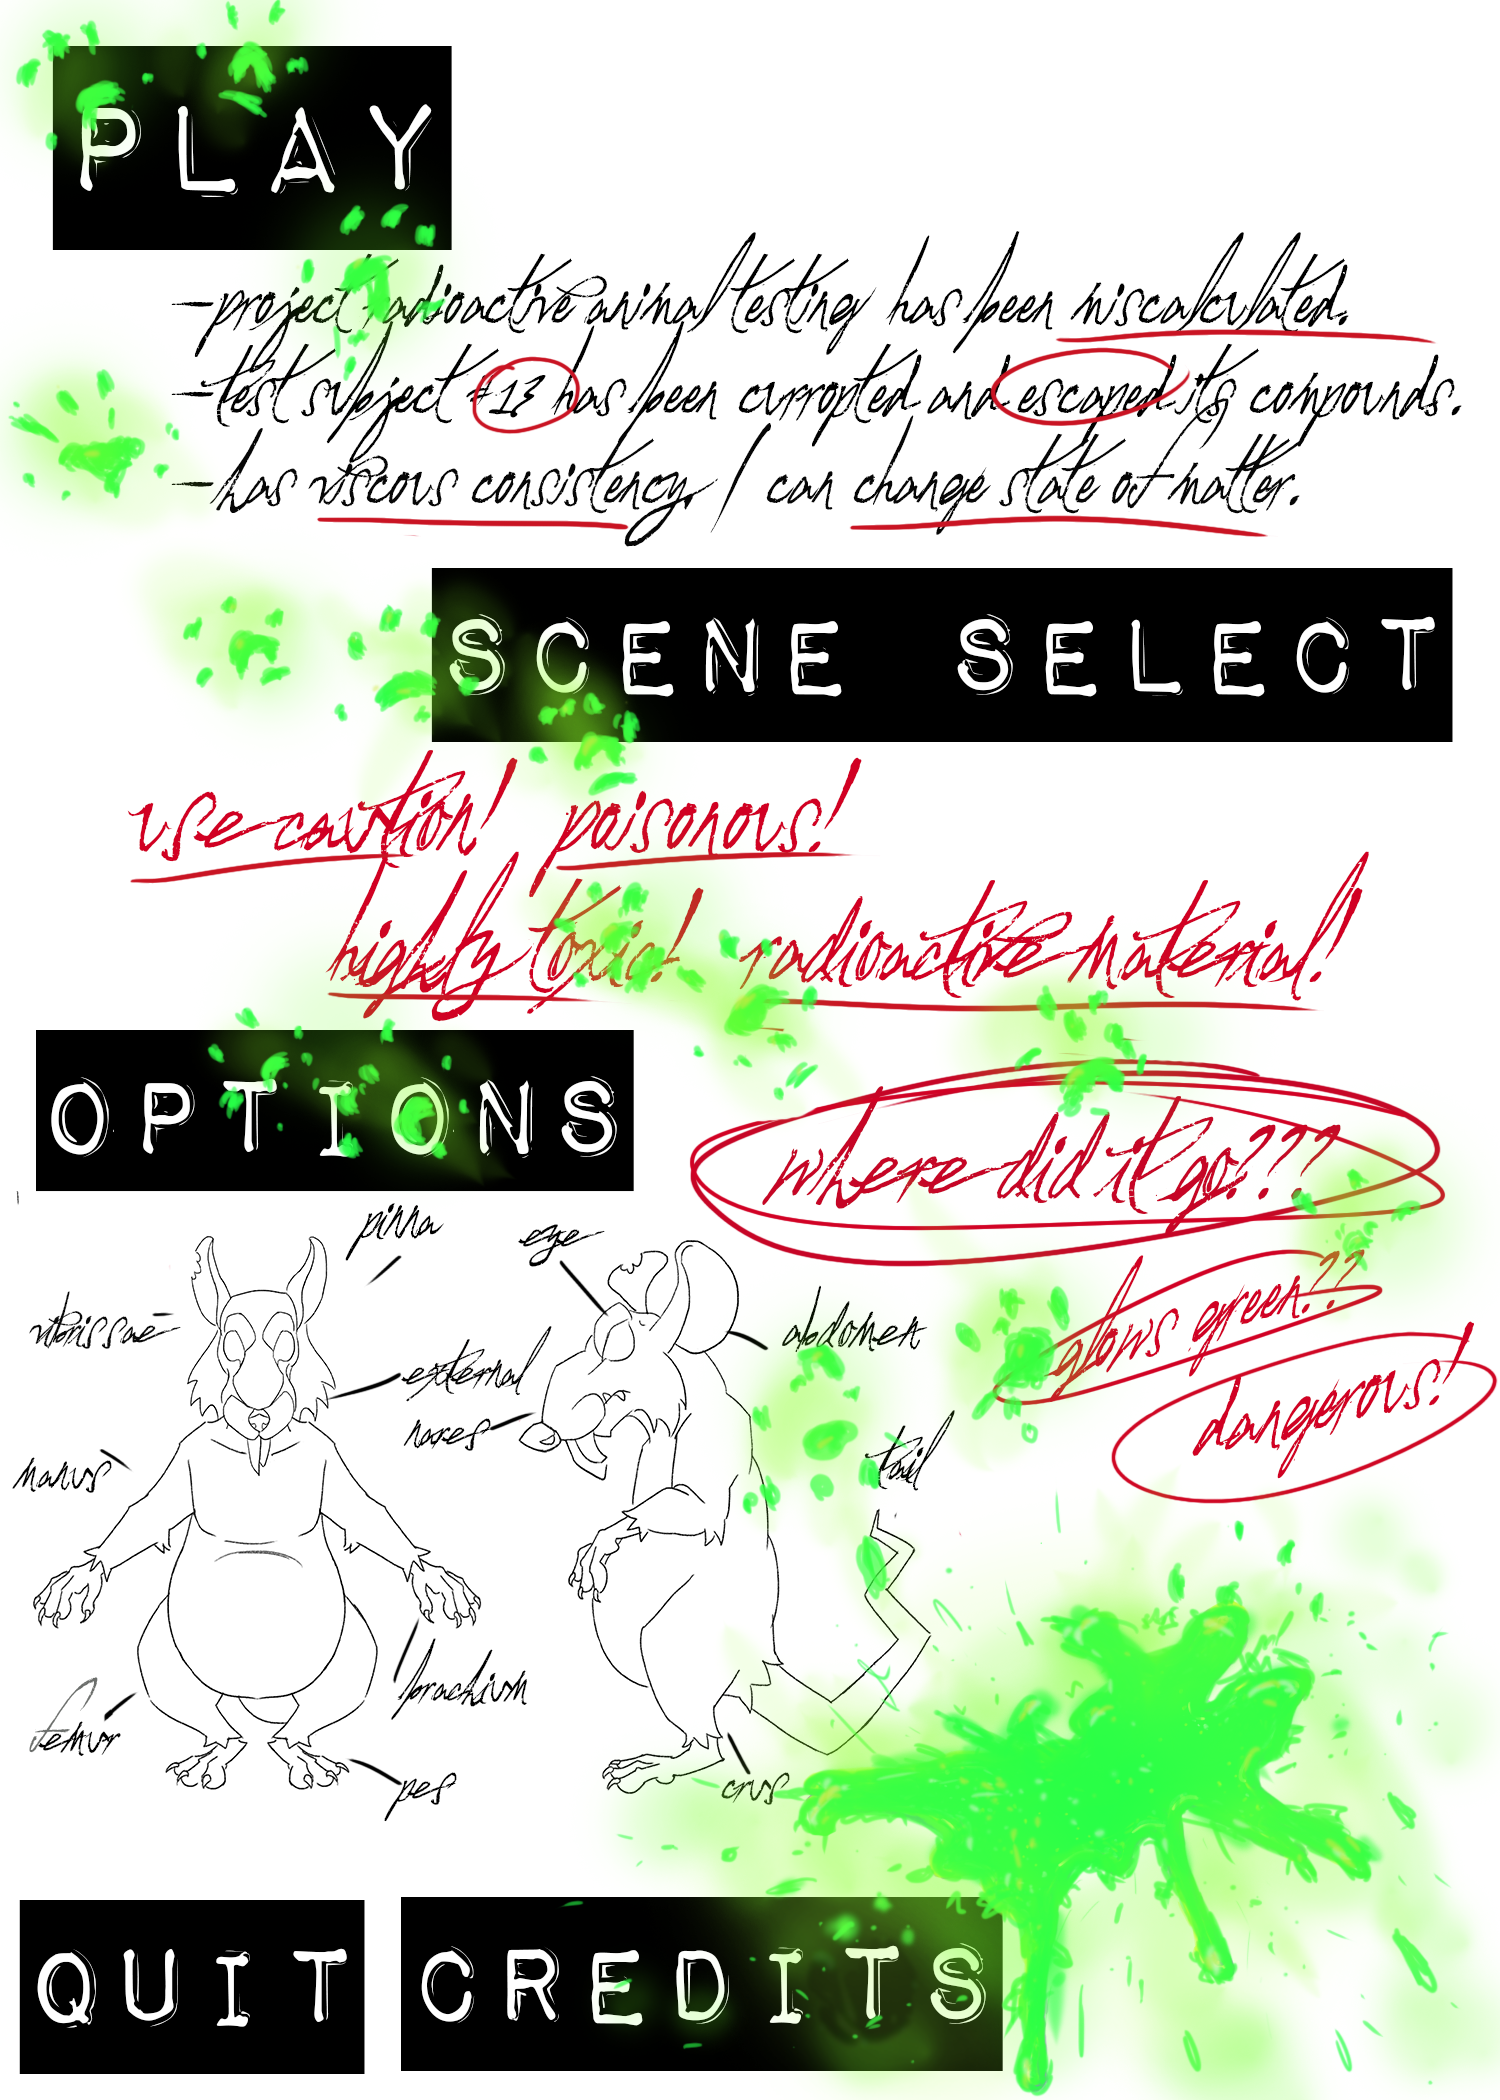 PLAY
-project radioactive animal testing has been miscalculated.
-test subject #13 has been curropted and escaped its compounds.
-has viscous consistency. / can change state of matter.
SCENE SELECT
use caution! poisonous!
highly toxic! radioactive material!
OPTIONS
where did it go???
glows green??
dangerous!
pinna
eye
vibrissae
abdomen
external
nares
tail
manus
brachium
femur
pes
crus
QUIT
CREDITS